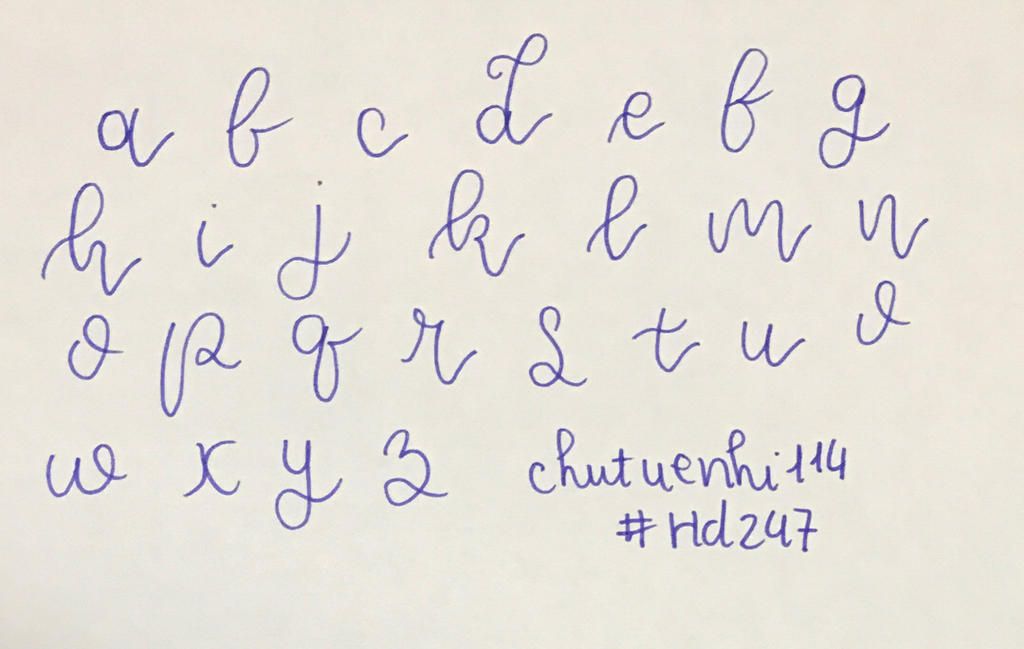 a b c d e f g
h i j k l m n
o p q r s t u v
w x y z chutuenhi114
#Hd247